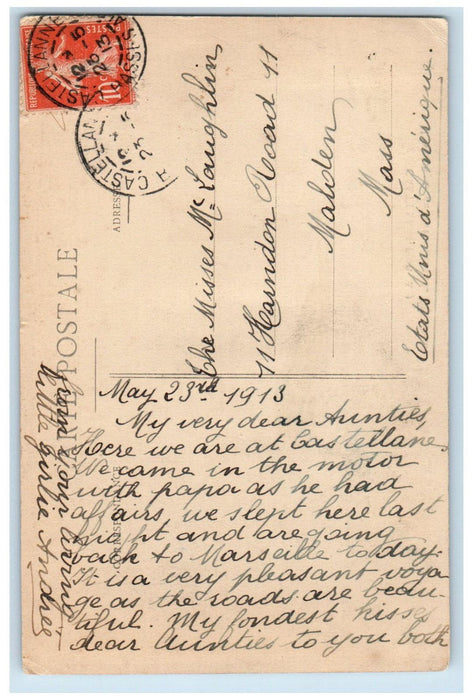 CARTE POSTALE
CORRESPONDANCE
ADRESSE
10
CASTELLANNE
A CASTELLAN
The Misses Mc Laughlin
11 Harndon Road 11
Malden
Mass
Etats Unis d'Amérique.
May 23rd 1913
My very dear Aunties,
Here we are at Castellane
We came in the motor
with papa as he had
affairs we slept here last
night and are going
back to Marseille to day.
It is a very pleasant voya
ge as the roads are beau-
tiful. My fondest kisses
dear Aunties to you both
from your loving
little girlie Andrée